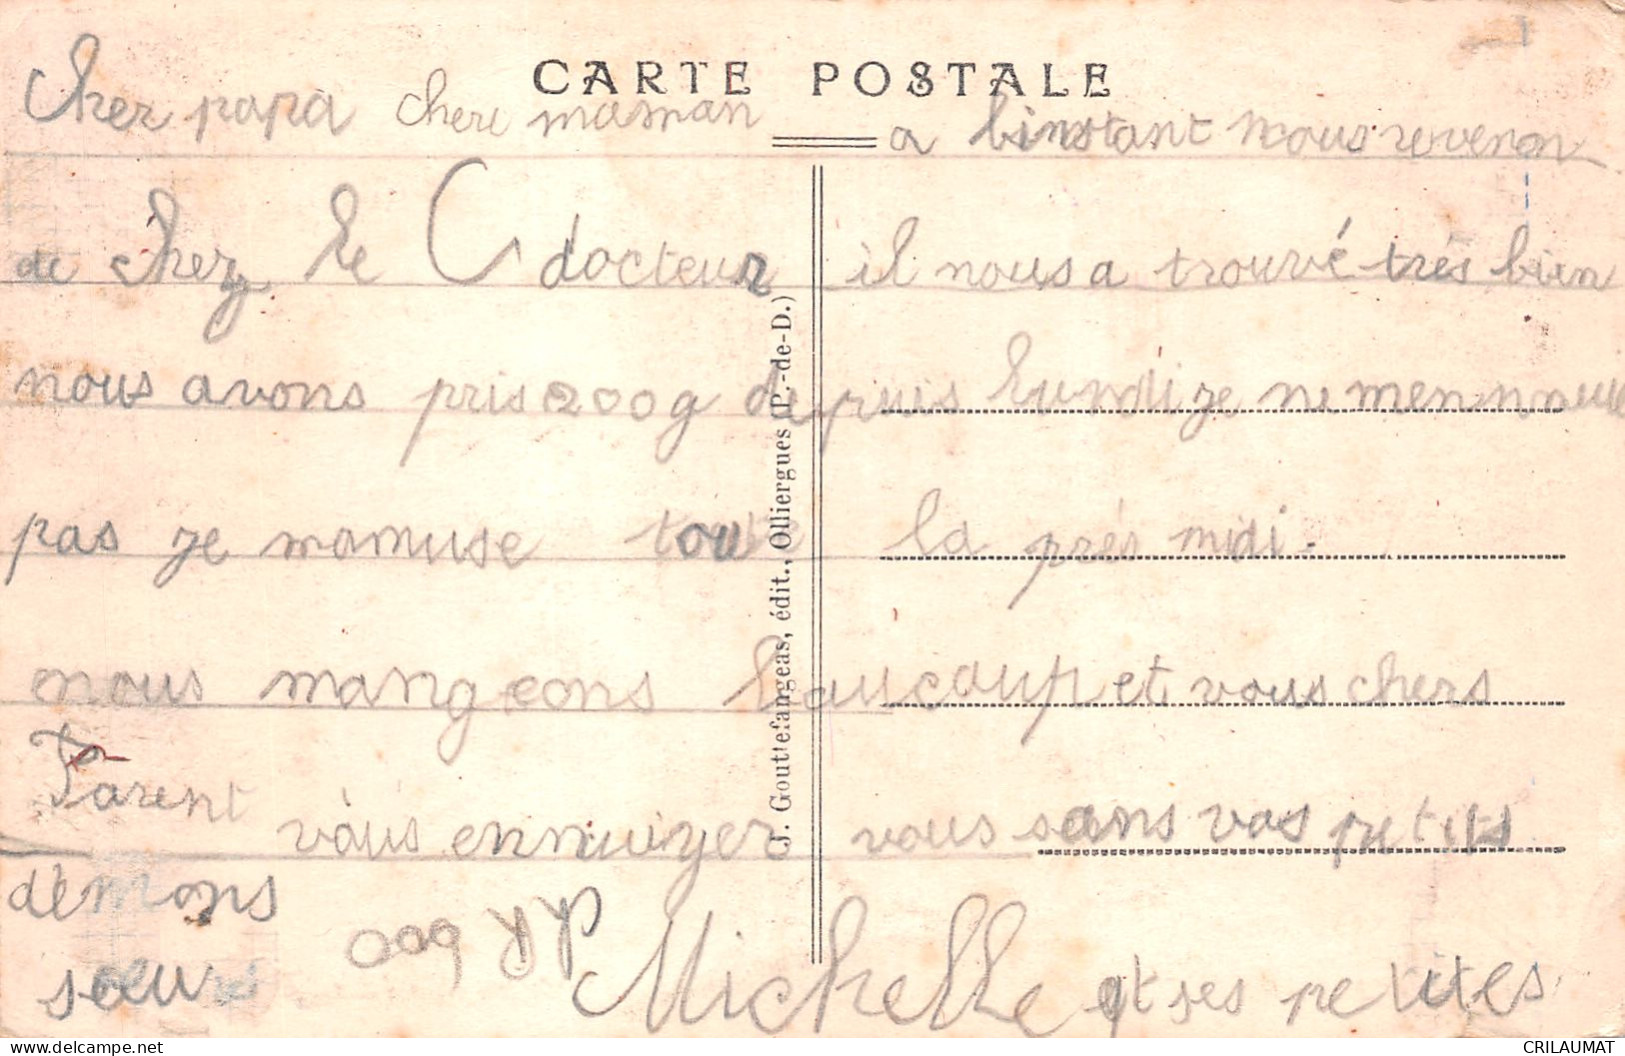 CARTE POSTALE
Cher papa chere maman a linstant nous revenon
de chez le docteur il nous a trouvé très bien
nous avons pris 200g depuis lundi ze ne mennnuie
pas ze mamuse toute la prés midi.
nous mangeons baucoup et vous chers
Parent vous ennuiyer vous sans vos petits
démons
Michelle et ses petites
soeur
J. Gouttefangeas, édit., Olliergues (P.-de-D.)
CRILAUMAT